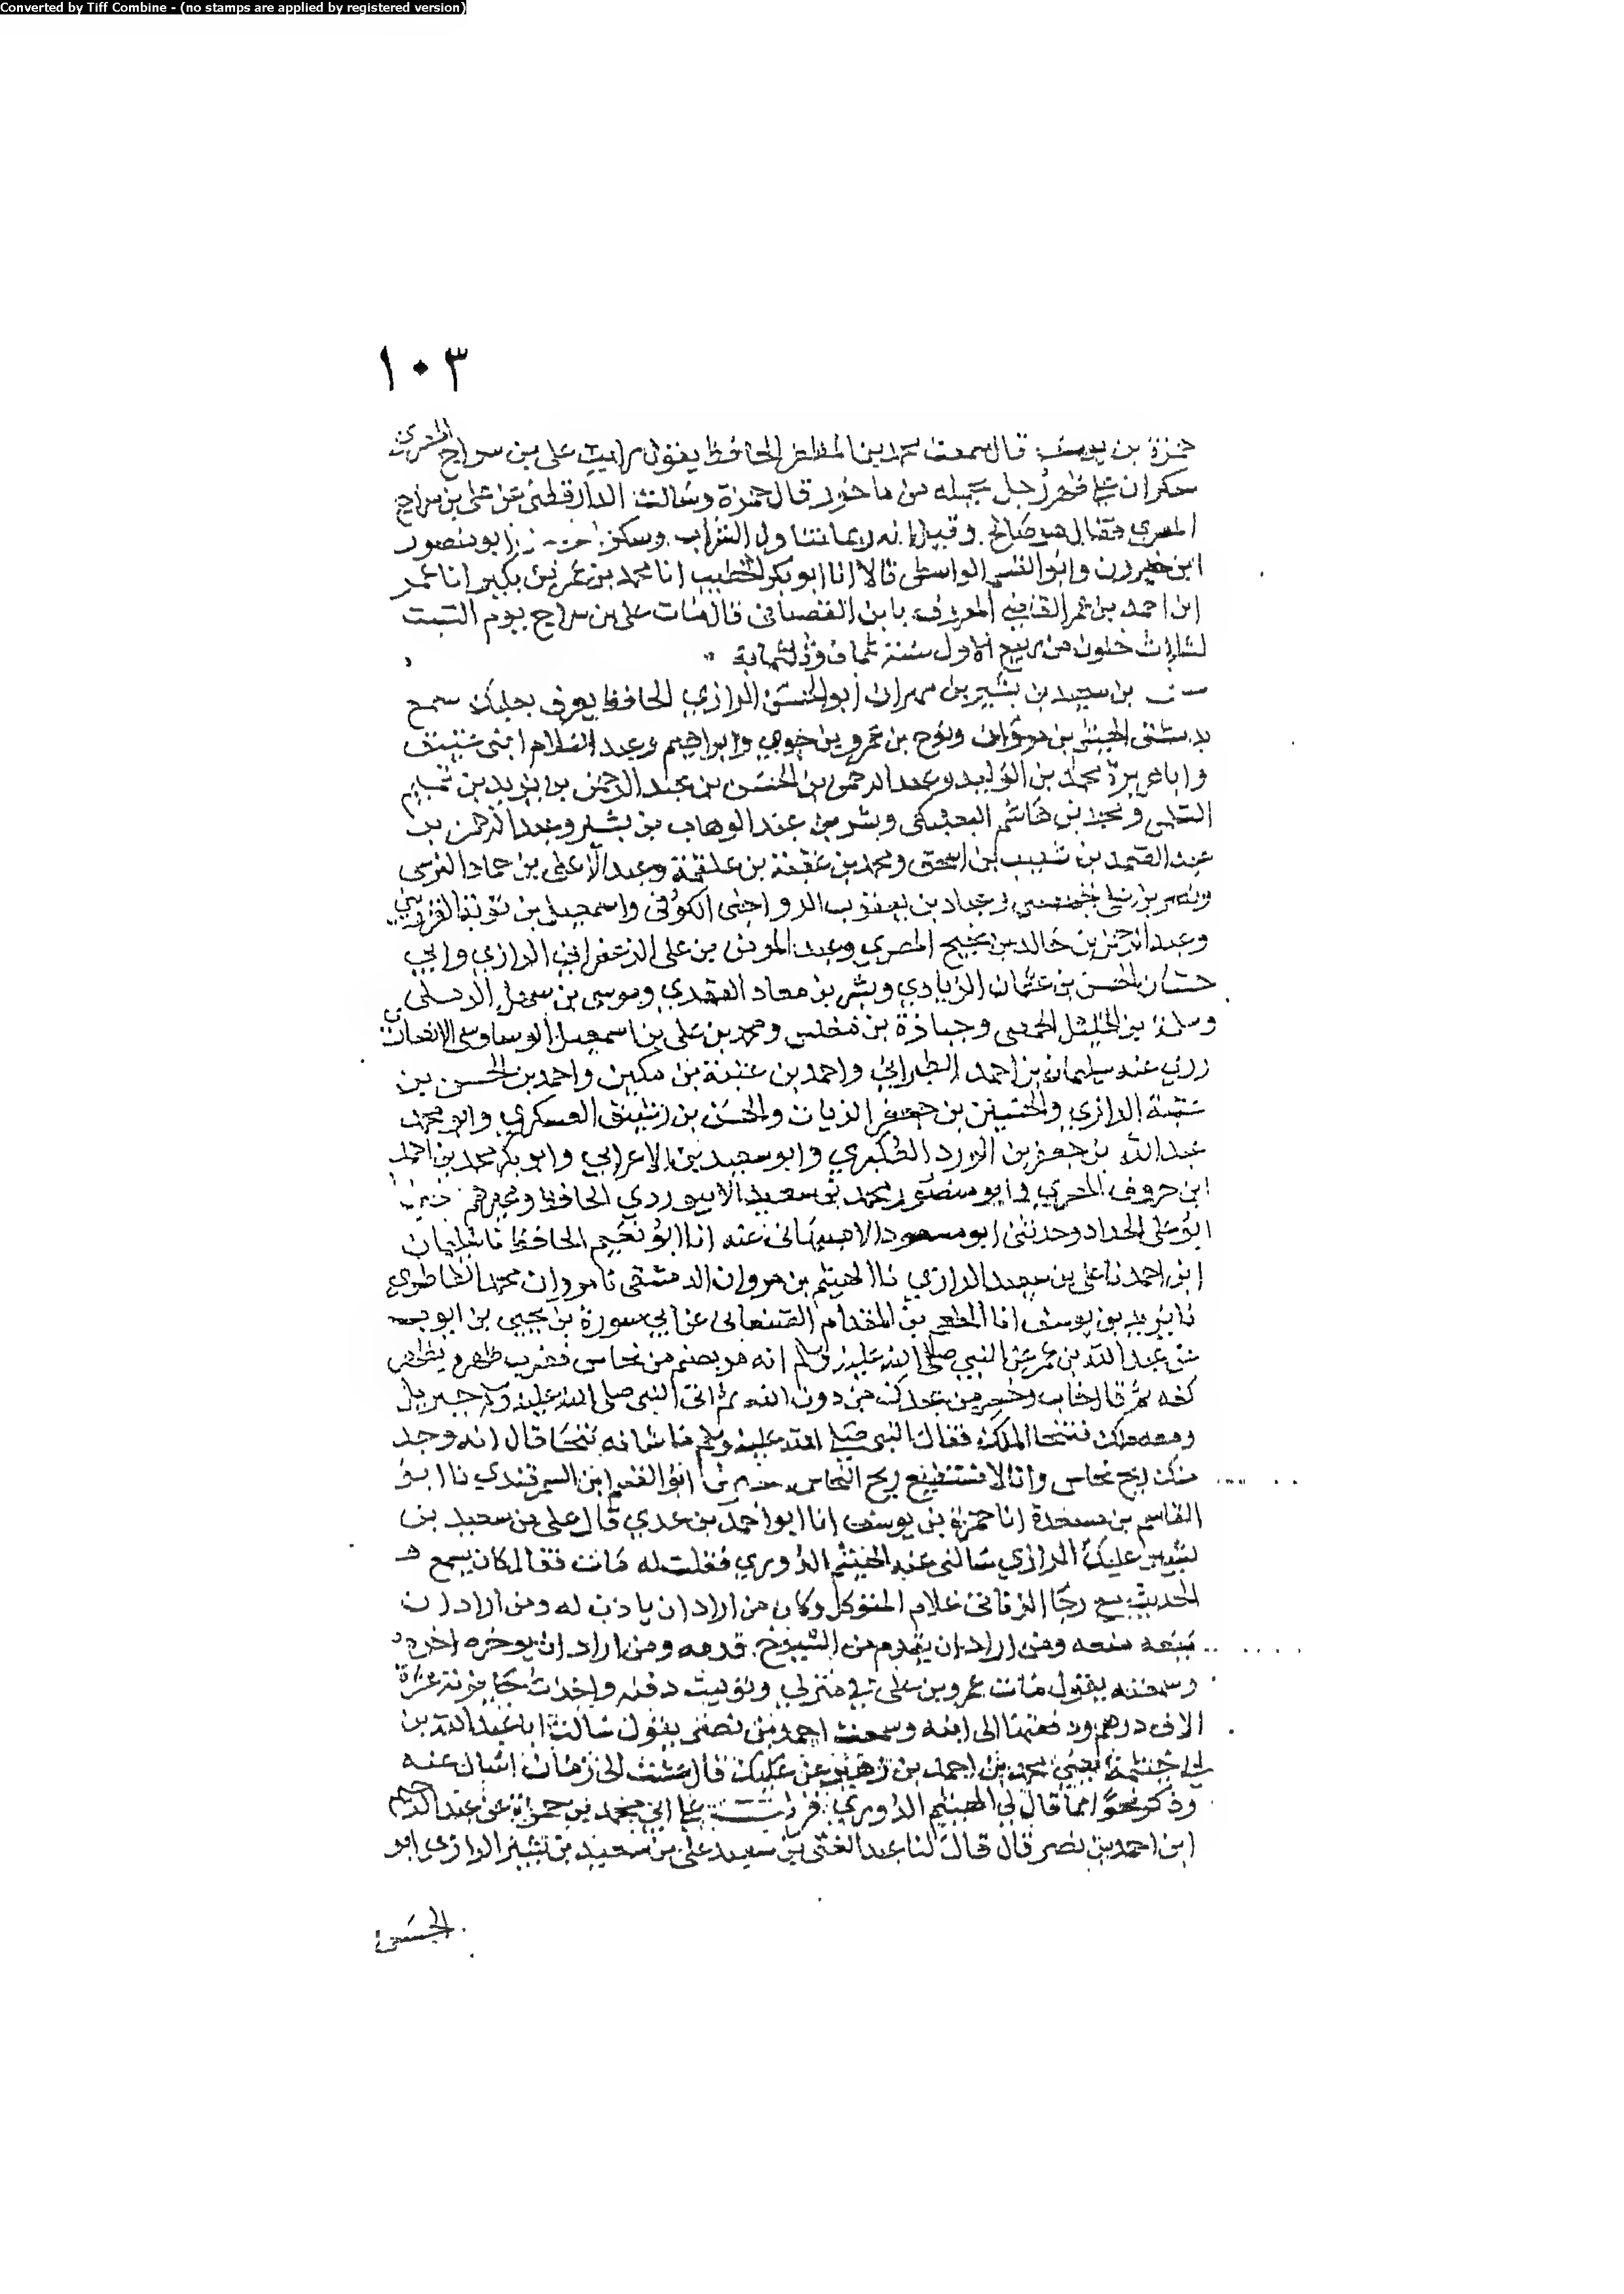 Converted by Tiff Combine - (no stamps are applied by registered version)
١٠٣
حمزة بن يوسف قال سمعت محمد بن المظفر الحافظ يقول رايت على بن سراج المصري
سكران على ظهر رجل يحمله من ماخور قال حمزة وسالت الدارقطني عن على بن سراج
المصري فقال هو صالح وقيل انه ربما تناول الشراب وسكر ابو منصور
ابن خيرون وابو القسم الواسطى قالا انا ابو بكر الخطيب انا محمد بن عمر بن بكير انا عمر
ابن احمد بن عمر القاضي المعروف بابن القصباني قال مات على بن سراج يوم السبت
لثلاث خلون من ربيع الاول سنة ثمان وثلثماية
بن سعيد بن بشير بن مهران ابو الحسن الرازي الحافظ يعرف بعليك سمع
بدمشق الهيثم بن مروان ونوح بن عمرو بن حوي وابراهيم وعبد السلام ابني عتيق
وابا هريرة محمد بن الوليد وعبد الرحمن بن الحسن بن عبد الرحمن بن يزيد بن تميم
السلمى ومحمد بن هاشم البعلبكى وبشر بن عبد الوهاب بن بشير وعبد الرحمن بن
عبد الصمد بن شعيب بن اسحق ومحمد بن عقبة بن علقمة وعبد الاعلى بن حماد النرسي
ونصر بن على الجهضمي وعباد بن يعقوب الرواجنى الكوفى واسمعيل بن توبة القزويني
وعبد الرحمن بن خالد بن نجيح المصري وعبد المومن بن على الزعفراني الرازي وابي
حسان الحسن بن عثمان الزيادي وبشر بن معاد العقدي وموسى بن سهل الرملى
وسلمة بن الخليل الحمصى وجبارة بن مغلس ومحمد بن على بن اسمعيل الوساوسى
روى عنه سليمان بن احمد الطبراني واحمد بن عتبة بن مكين واحمد بن الحسن بن
عتبة الرازي والحسين بن جعفر الزيات والحسن بن رشيق العسكري وابو محمد
عبد الله بن جعفر بن الورد العكبري وابو سعيد بن الاعرابي وابو بكر محمد بن احمد
ابن خروف المصري وابو منصور محمد بن سعيد الابيوردي الحافظ وغيرهم
ابو على الحداد وحدثني ابو مسعود الاصبهاني عنه انا ابو نعيم الحافظ نا سليمان
ابن احمد نا على بن سعيد الرازي نا الهيثم بن مروان الدمشقى نا مروان بن محمد الطاطري
نا يزيد بن يوسف انا المطعم بن المقدام الصنعاني عن ابي سورة بن يحيى بن ايوب
عن عبد الله بن عمر عن النبي صلى الله عليه وسلم انه مر بصنم من نحاس فضرب ظهره بظاهر
كفه ثم قال خاب وخسر من عبدك من دون الله ثم اتى النبى صلى الله عليه وسلم جبريل
ومعه ملك فتنحا الملك فقال النبي صلى الله عليه وسلم ما شانه تنحا قال انه وجد
منك ريح نحاس وانا لا نستطيع ريح النحاس ابو القسم ابن السمرقندي نا ابو
القاسم بن مسعدة انا حمزة بن يوسف انا ابو احمد بن عدي قال على بن سعيد بن
بشير عليك الرازي سالنى عنه الهيثم الدوري فقلت له مات فقال كان يسمع
الحديث مع رجا غلام المتوكل وكان من اراد ان ياذن له ومن اراد ان
يمنعه منعه ومن اراد ان يقدم من الشيوخ قدمه ومن اراد ان يوخره اخره
وسمعته يقول مات عمرو بن على في منزلي وتوليت دفنه واخذت عشرة
الاف درهم ودفعتها الى ابنه وسمعت احمد بن نصر يقول سالت ابا عبد الله بن
ابي خيثمة يعني محمد بن احمد بن زهير عن عليك قال عشت الى زمان اسال عنه
وذكر نحوا مما قال لي الهيثم الدوري قرات على ابي محمد بن حمزة عن عبد الرحيم
ابن احمد بن نصر قال قال لنا عبد الغنى بن سعيد على بن سعيد بن بشير الرازي ابو
الحسن